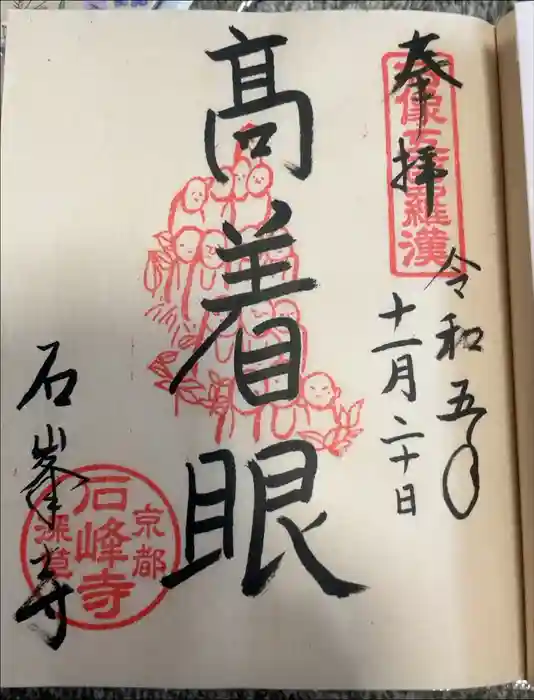 奉拝
石像五百羅漢
令和五年
十一月二十日
高着眼
石峯寺
京都
石峰寺
深草